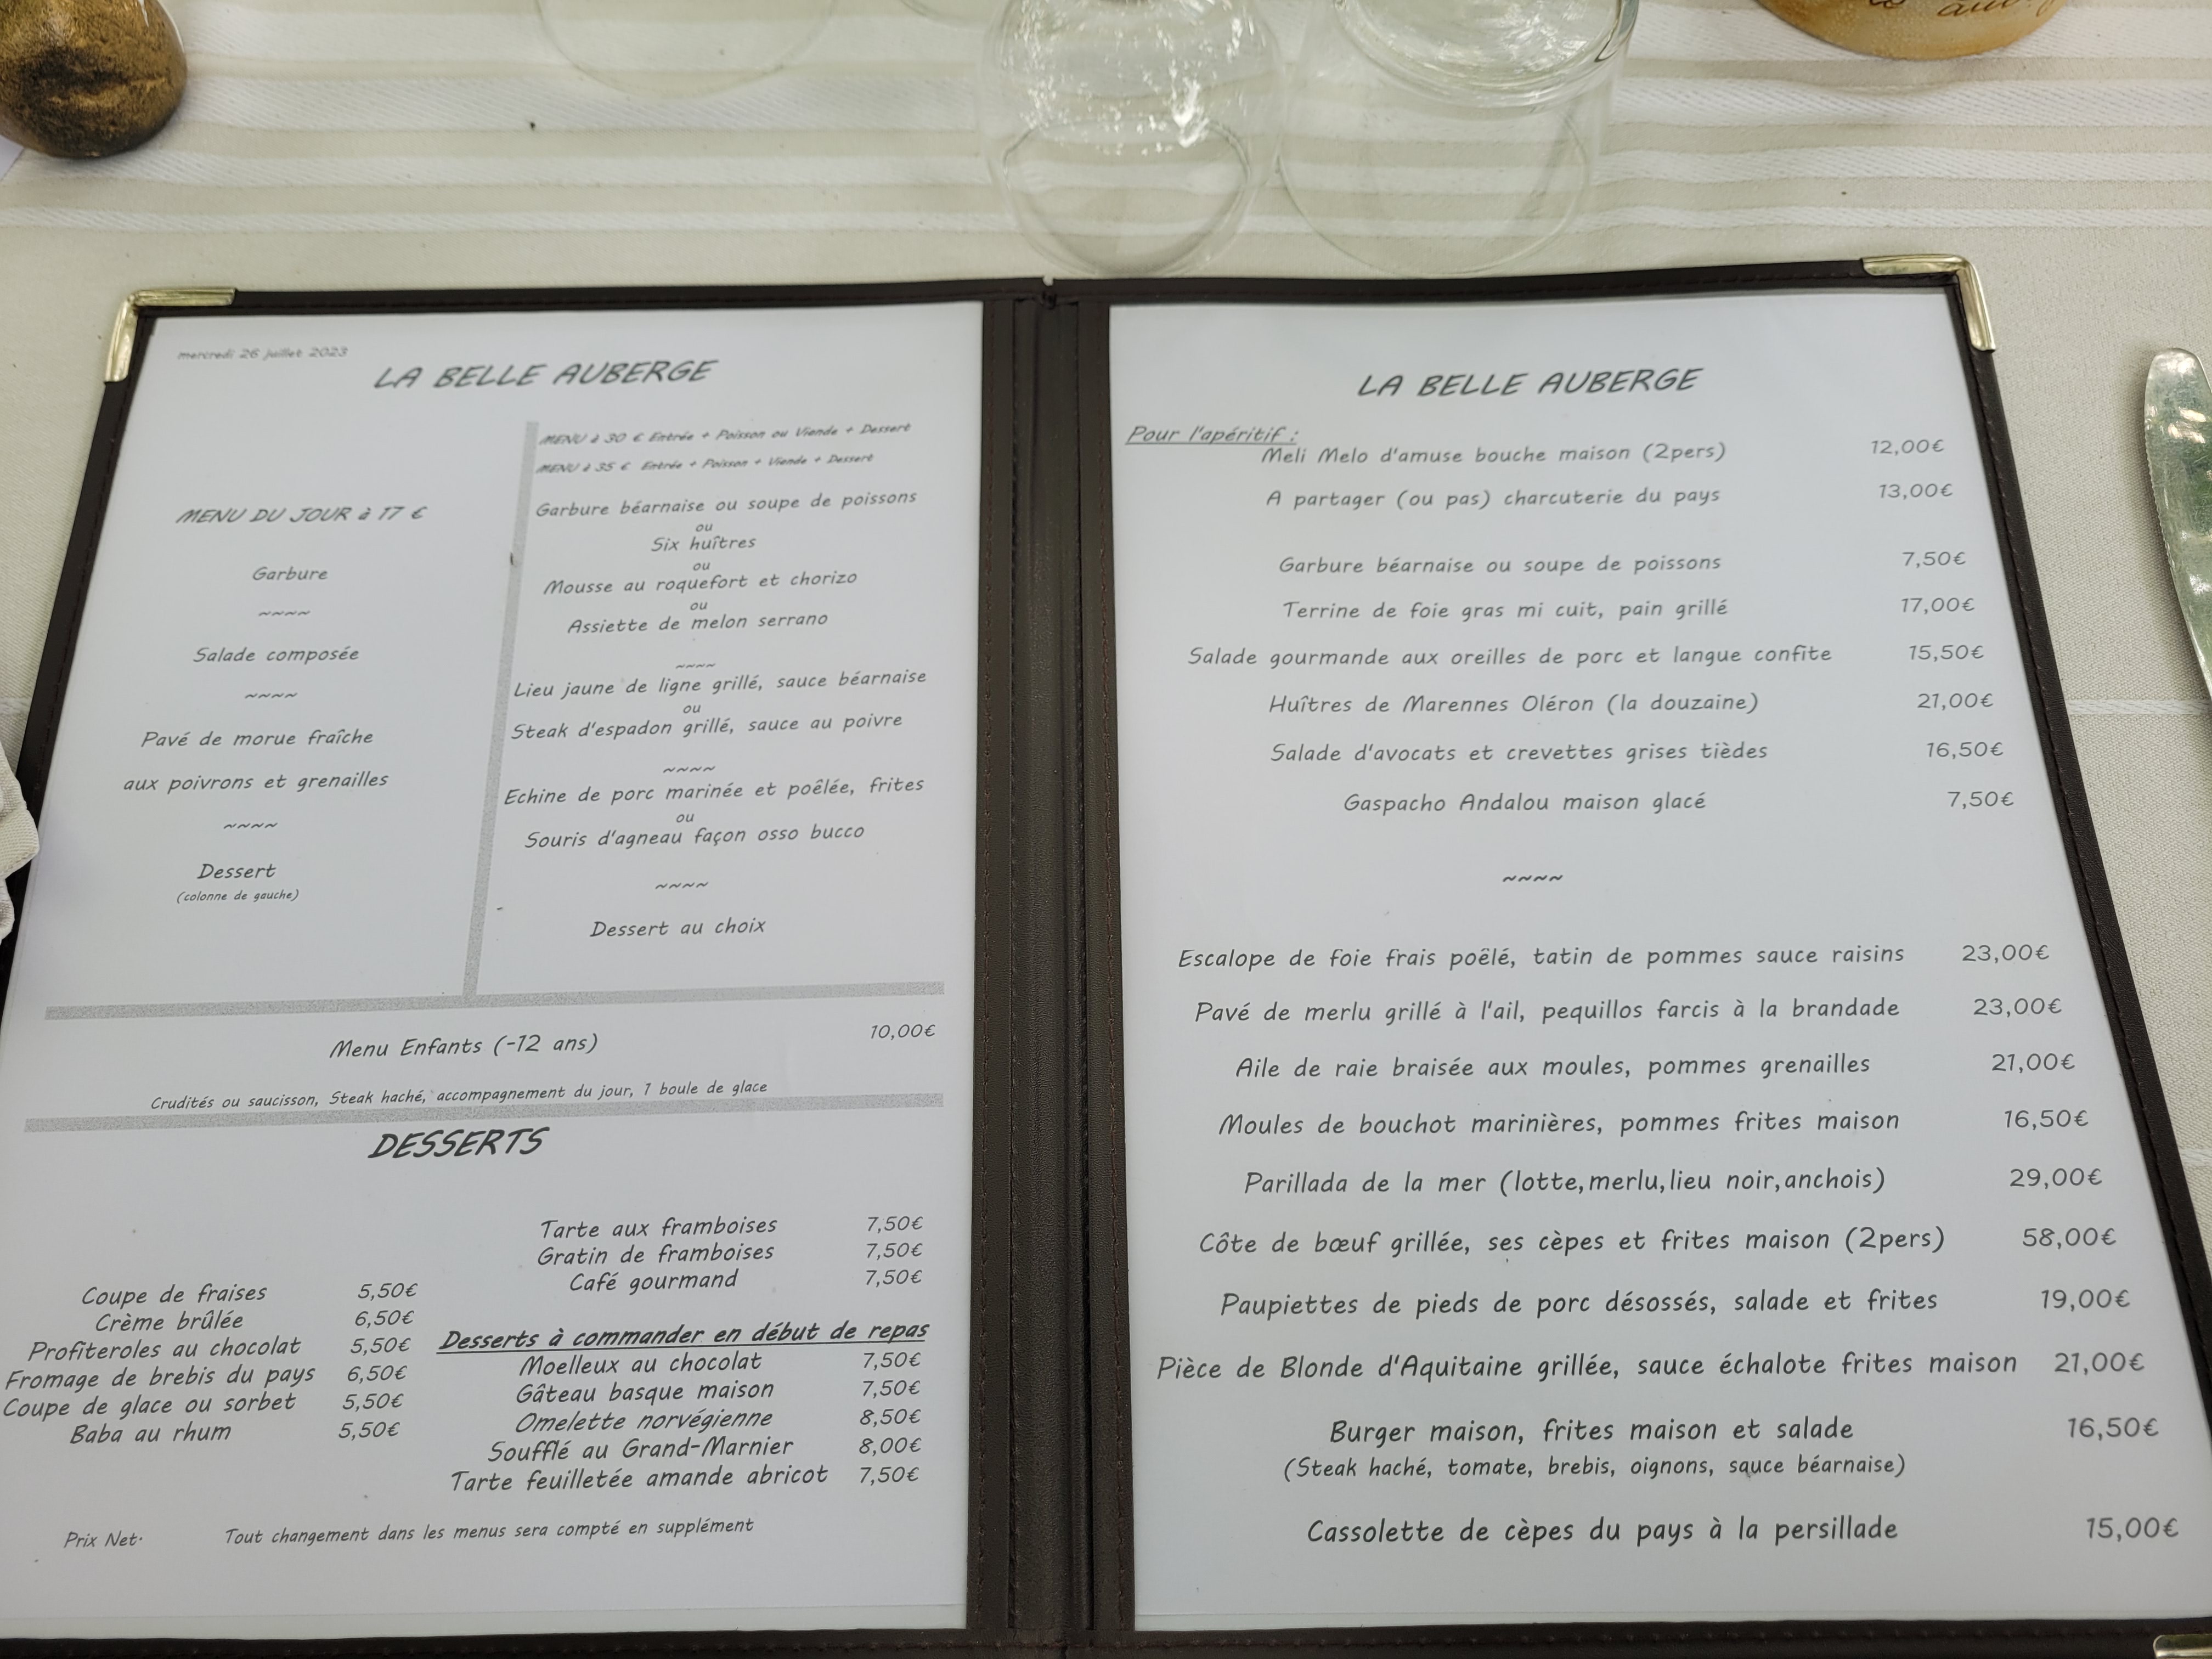 mercredi 26 juillet 2023
LA BELLE AUBERGE
MENU DU JOUR à 17 €
Garbure
~~~~
Salade composée
~~~~
Pavé de morue fraîche
aux poivrons et grenailles
~~~~
Dessert
(colonne de gauche)
MENU à 30 € Entrée + Poisson ou Viande + Dessert
MENU à 35 € Entrée + Poisson + Viande + Dessert
Garbure béarnaise ou soupe de poissons
ou
Six huîtres
ou
Mousse au roquefort et chorizo
ou
Assiette de melon serrano
~~~~
Lieu jaune de ligne grillé, sauce béarnaise
ou
Steak d'espadon grillé, sauce au poivre
~~~~
Echine de porc marinée et poêlée, frites
ou
Souris d'agneau façon osso bucco
~~~~
Dessert au choix
Menu Enfants (-12 ans) 10,00€
Crudités ou saucisson, Steak haché, accompagnement du jour, 1 boule de glace
DESSERTS
Coupe de fraises 5,50€
Crème brûlée 6,50€
Profiteroles au chocolat 5,50€
Fromage de brebis du pays 6,50€
Coupe de glace ou sorbet 5,50€
Baba au rhum 5,50€
Tarte aux framboises 7,50€
Gratin de framboises 7,50€
Café gourmand 7,50€
Desserts à commander en début de repas
Moelleux au chocolat 7,50€
Gâteau basque maison 7,50€
Omelette norvégienne 8,50€
Soufflé au Grand-Marnier 8,00€
Tarte feuilletée amande abricot 7,50€
Prix Net. Tout changement dans les menus sera compté en supplément
LA BELLE AUBERGE
Pour l'apéritif :
Meli Melo d'amuse bouche maison (2pers) 12,00€
A partager (ou pas) charcuterie du pays 13,00€
Garbure béarnaise ou soupe de poissons 7,50€
Terrine de foie gras mi cuit, pain grillé 17,00€
Salade gourmande aux oreilles de porc et langue confite 15,50€
Huîtres de Marennes Oléron (la douzaine) 21,00€
Salade d'avocats et crevettes grises tièdes 16,50€
Gaspacho Andalou maison glacé 7,50€
~~~~
Escalope de foie frais poêlé, tatin de pommes sauce raisins 23,00€
Pavé de merlu grillé à l'ail, pequillos farcis à la brandade 23,00€
Aile de raie braisée aux moules, pommes grenailles 21,00€
Moules de bouchot marinières, pommes frites maison 16,50€
Parillada de la mer (lotte,merlu,lieu noir,anchois) 29,00€
Côte de bœuf grillée, ses cèpes et frites maison (2pers) 58,00€
Paupiettes de pieds de porc désossés, salade et frites 19,00€
Pièce de Blonde d'Aquitaine grillée, sauce échalote frites maison 21,00€
Burger maison, frites maison et salade 16,50€
(Steak haché, tomate, brebis, oignons, sauce béarnaise)
Cassolette de cèpes du pays à la persillade 15,00€